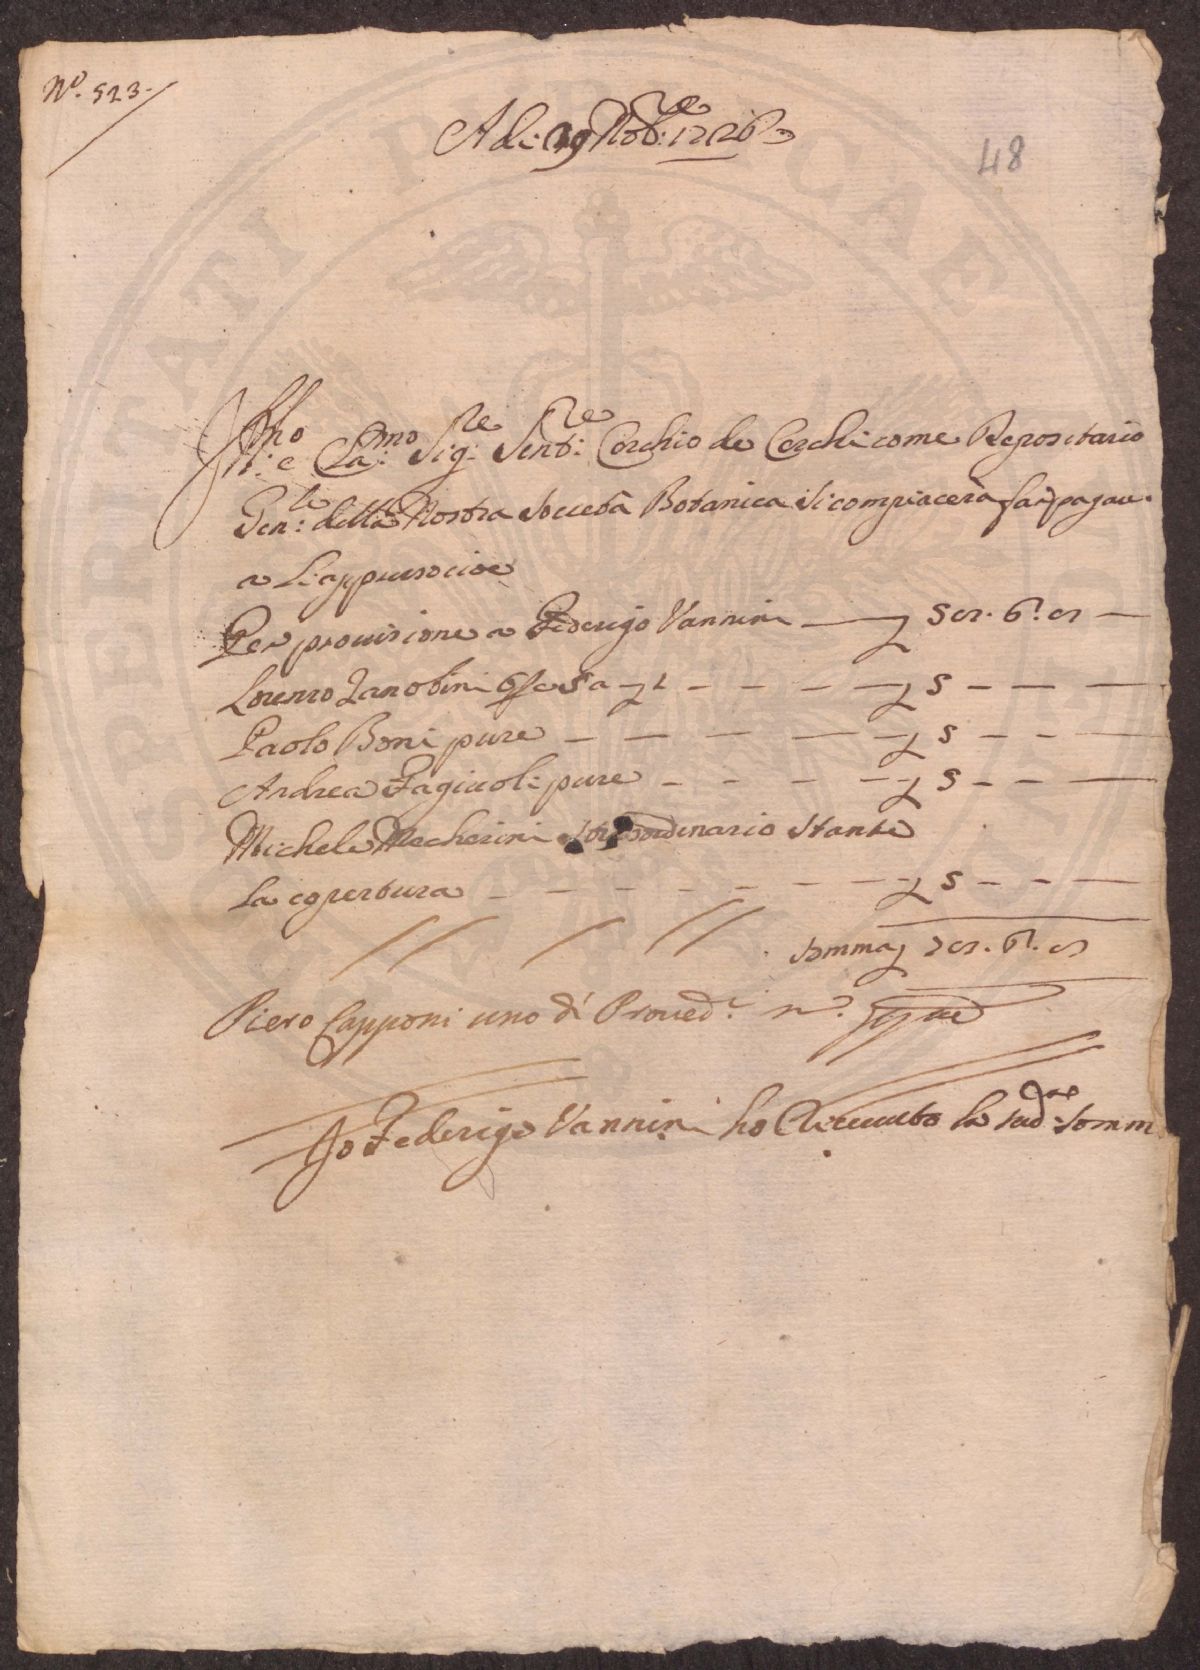 N.º 523.
Adi: 29 Nob:re 1726
48
Ill:mo e Cla:mo Sig:re Sent:re Cerchio de Cerchi come Depositario
Gen:le della Nostra Società Botanica si compiacerà far pagare
a
Per prouisione a Federigo Vannini
Lorenzo Zanobini 5
Paolo Boni pure 5
Andrea Fagiuoli pure 5
Michele Mecherini straordinario stante
la copertura 5
somma
Piero Capponi uno di Proued.i
Io Federigo Vannini ho Riceuuto la sud:a somm